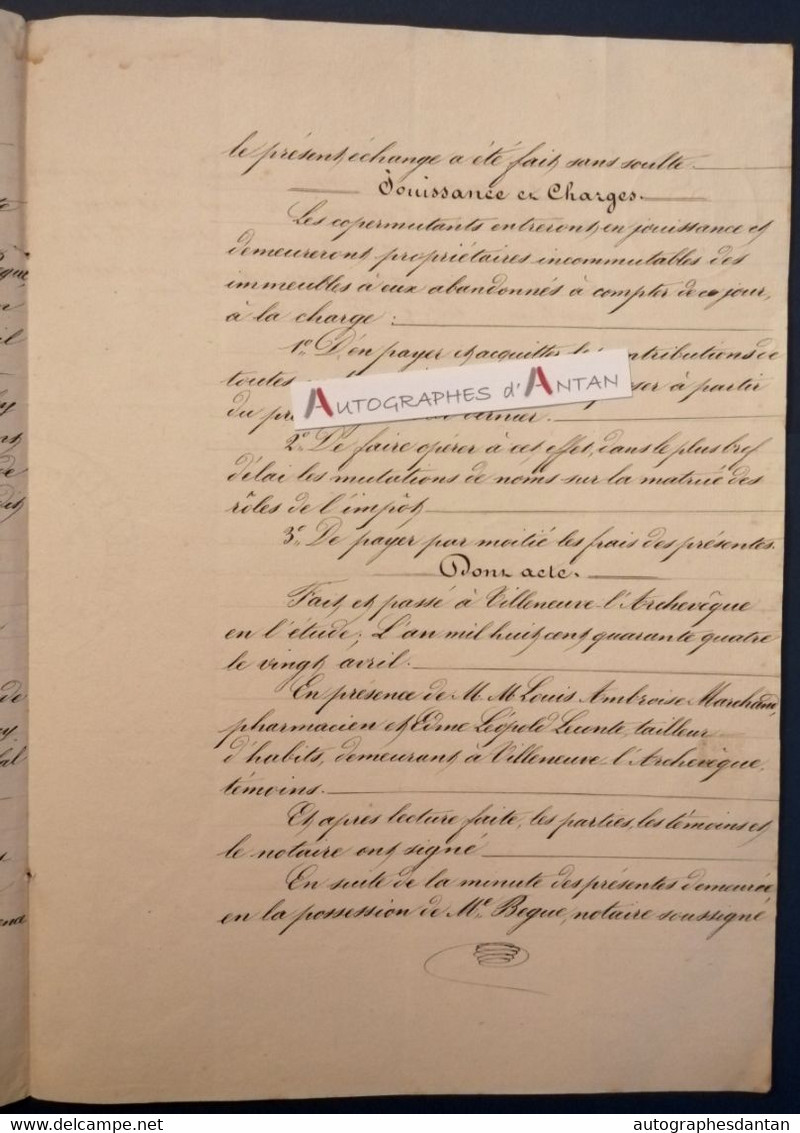 le présent échange a été fait sans soulte.
Jouissance et Charges.
Les copermutants entreront en jouissance et
demeureront propriétaires incommutables des
immeubles à eux abandonnés à compter de ce jour,
à la charge :
1° D'en payer et acquitter les contributions de
toutes
à partir
du
dernier.
AUTOGRAPHES d'ANTAN
2° De faire opérer à cet effet, dans le plus bref
délai les mutations de noms sur la matrice des
rôles de l'impôt
3° De payer par moitié les frais des présentes.
Dont acte.
Fait et passé à Villeneuve-l'Archevêque
en l'étude; L'an mil huit cent quarante quatre
le vingt avril.
En présence de M. M. Louis Ambroise Marchand,
pharmacien et Edme Léopold Leconte, tailleur
d'habits, demeurant à Villeneuve-l'Archevêque,
témoins.
Et après lecture faite, les parties, les témoins et
le notaire ont signé
En suite de la minute des présentes demeurée
en la possession de Me. Begue, notaire soussigné
delcampe.net
autographesdantan